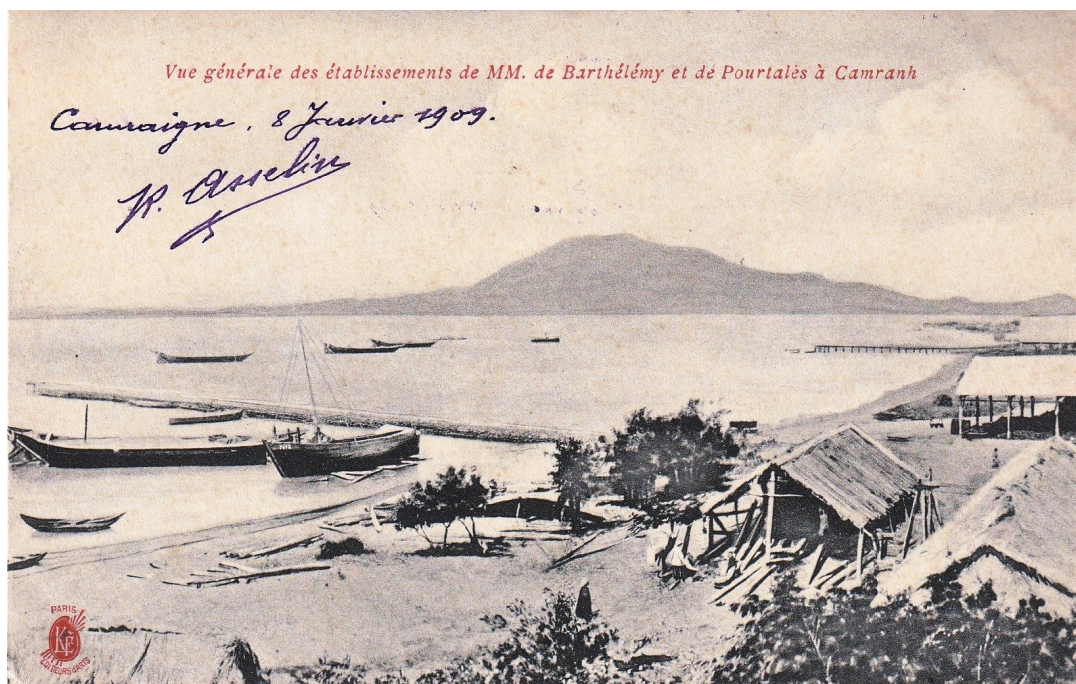 Vue générale des établissements de MM. de Barthélémy et de Pourtalès à Camranh
Camraigne, 8 Janvier 1909.
R. Asselin
PARIS
KF
EDITEURS D'ARTS